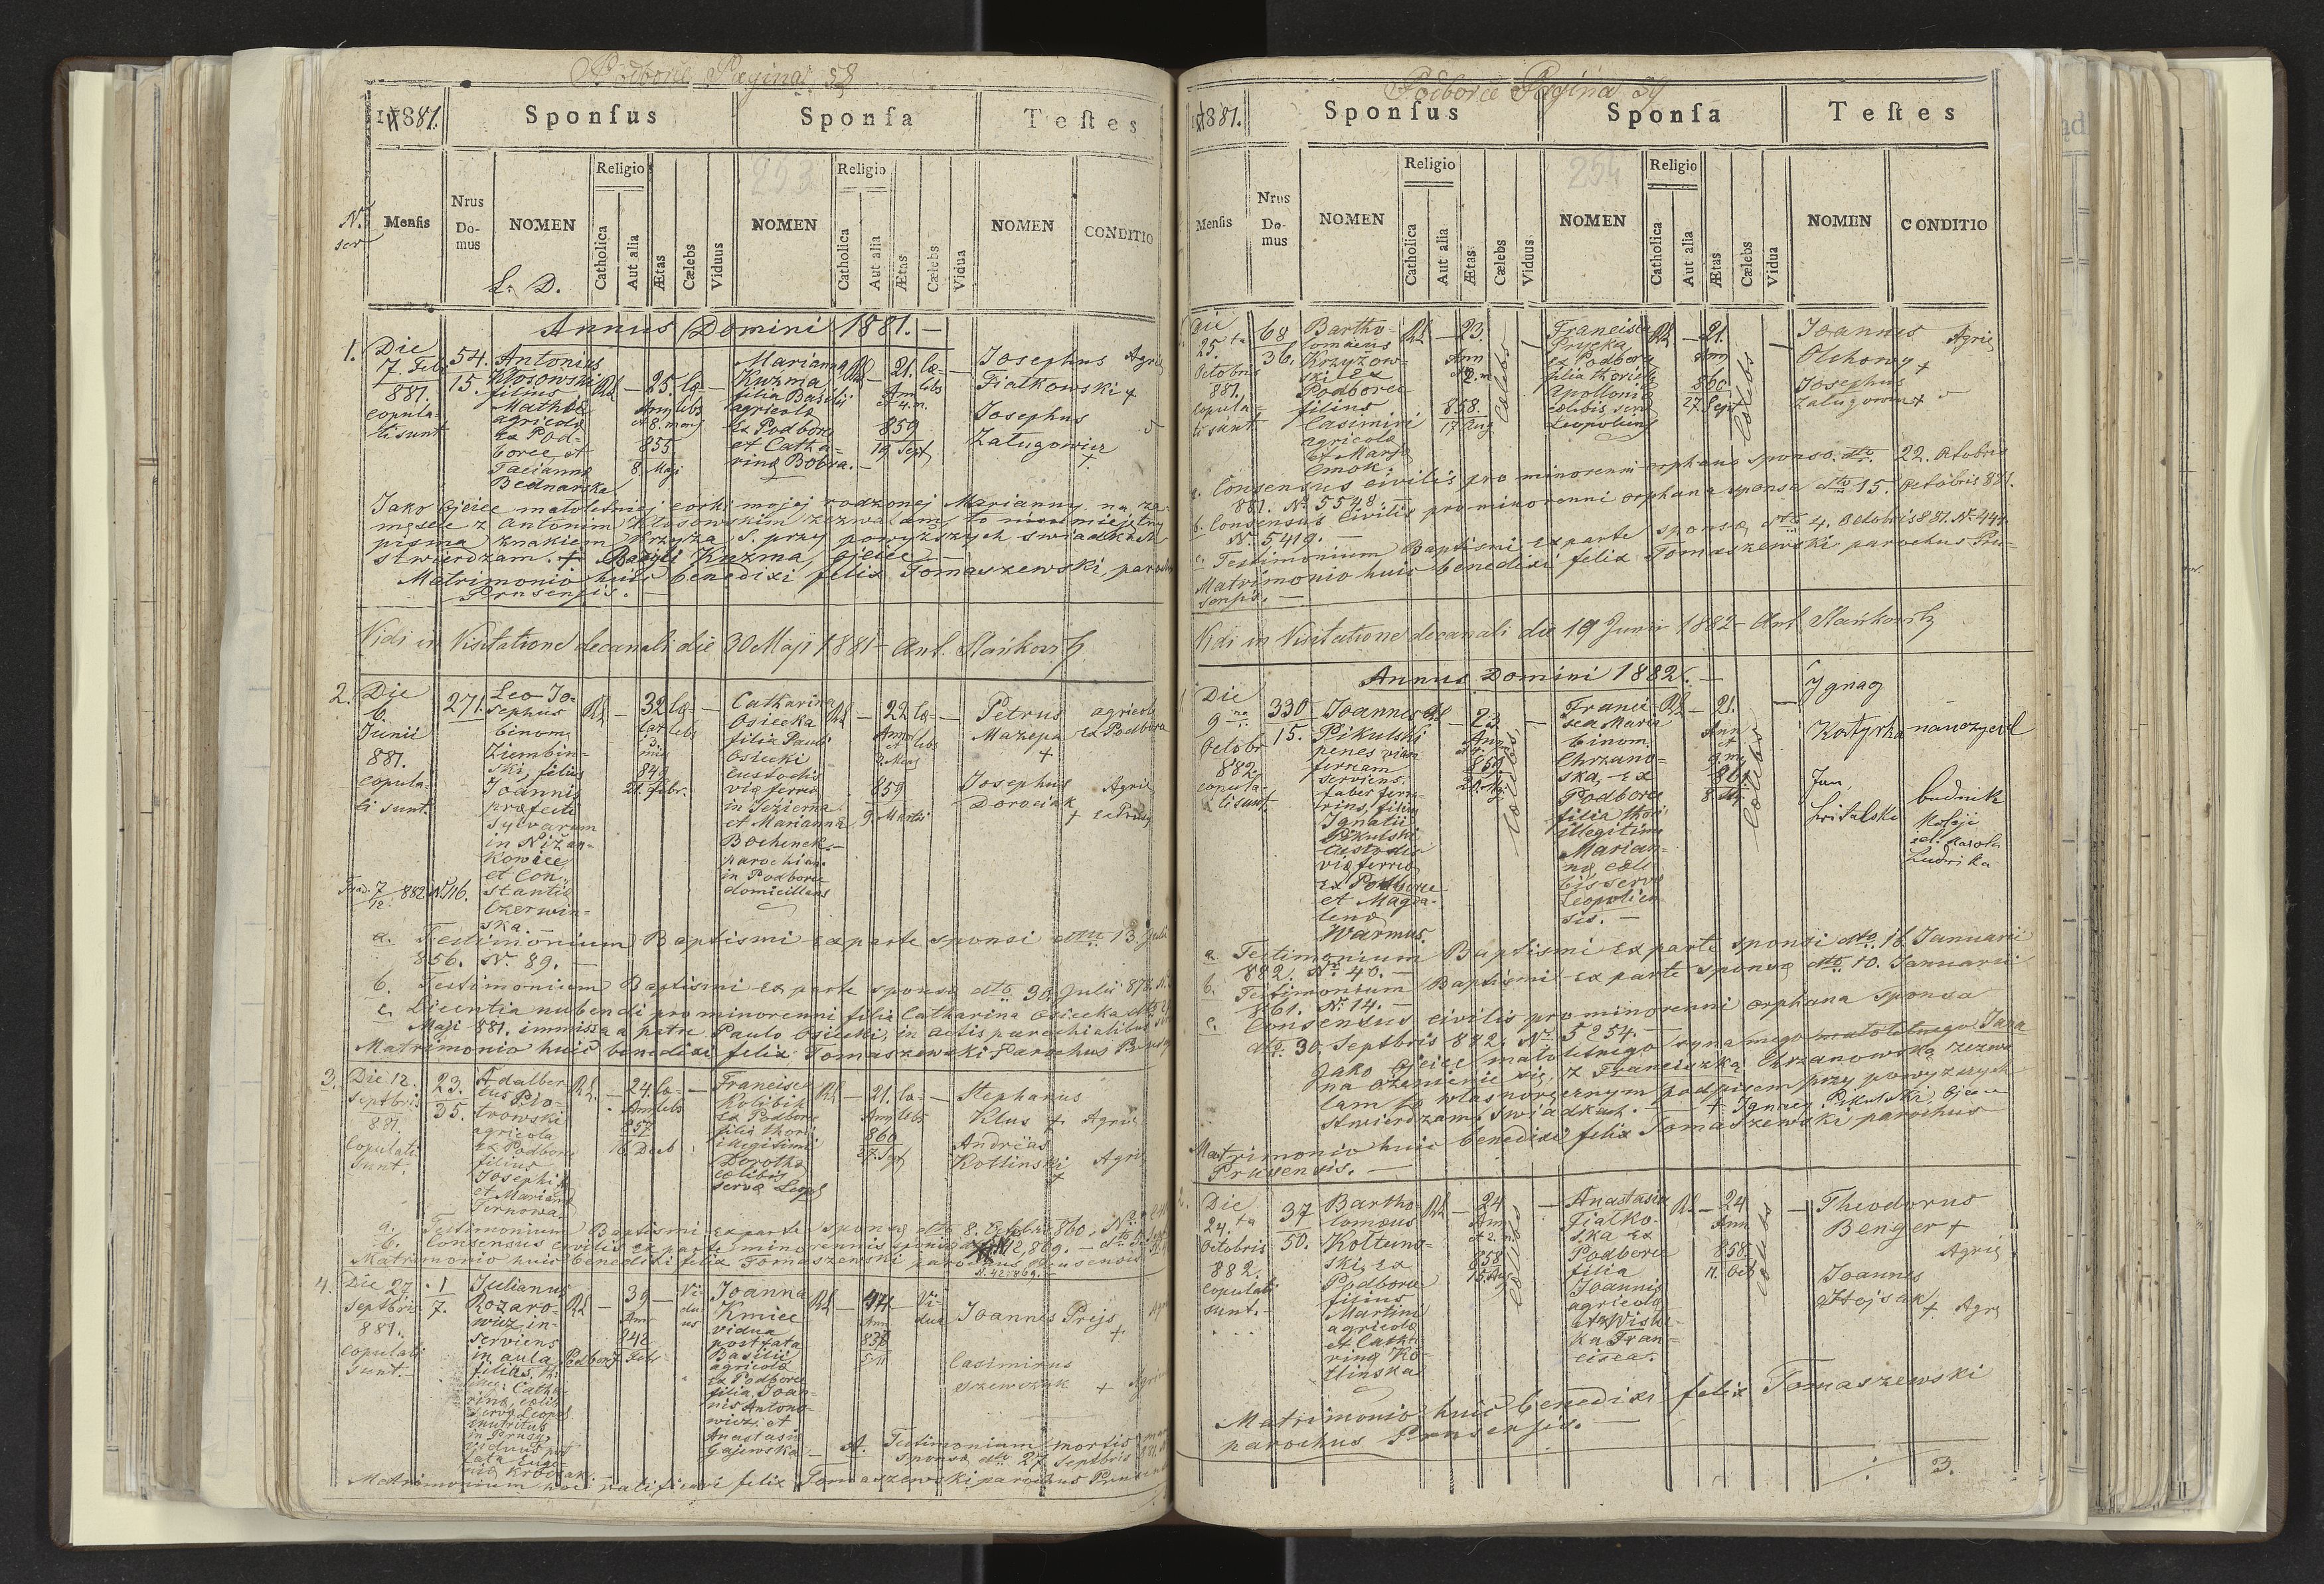 Podborce Pagina 58
1881.
Sponsus
Sponsa
Testes
253
N.
ser
Mensis
Nrus Domus
NOMEN
L. D.
Religio
Catholica
Aut alia
Ætas
Cælebs
Viduus
NOMEN
Religio
Catholica
Aut alia
Ætas
Cælebs
Vidua
NOMEN
CONDITIO
Annus Domini 1881. —
1. Die
7. Feb
881.
copula-
ti sunt
54.
15.
Antonius
Kłosowski
filius
Mathiæ
agricolæ
ex Pod-
borce et
Tacianna
Bednarska
RL — 25 cæ- —
Ann lebs
et 8. mens
855
8. Maji
Marianna
Kuzma
filia Basilii
agricolæ
ex Podborce
et Catha-
rinæ Bobra. —
RL — 21. cæ- —
Ann lebs
et 4. m.
859
19 Sept
Josephus Agric
Fiałkowski +
Josephus
Załugowicz
+.
Jako Ojciec małoletniej córki mojej rodzonej Marianny, na za-
męście z Antonim Kłosowskim zezwalam, to nieumiejętny
pisma znakiem Krzyża S. przy powyższych świadkach
stwierdzam. + Bazyli Kuzma, Ojciec —
Matrimonio huic benedixi felix Tomaszewski, paroch
Prusensis. —
Vidi in Visitatione decanali die 30 Maji 1881 — Ant.
2. Die
6.
Junii
881.
copula-
ti sunt.
271.
Leo Jo-
sephus
binom.
Ziembin-
ski, filius
Joannis
præfecti
sylvarum
in Niżan-
kowice
et Con-
stantiæ
Czerwin-
ska. —
RL — 32 cæ- —
lebs
849
21. Febr.
Catharina
Osiecka
filia Pauli
Osiecki
custodis
viæ ferreæ
in Jezierna
et Marianna
Bochenek. —
parochiana
in Podborce
domicilians
RL — 22 cæ- —
Annor lebs
et
2 Mens
859
9. Martii
Petrus agricola
Mazepa ex Podborce
+
Josephus Agric
Dorociak
+ ex Prusy
7/12 882 N. 16.
a. Testimonium Baptismi ex parte sponsi dtto 13. Julii
856. N. 89. —
b. Testimonium Baptismi ex parte sponsæ dtto 30. Julii
c. Licentia nubendi pro minorenni filia Catharina Osiecka dtto
Maji 881. immissa a patre Paulo Osiecki, in actis parochialibus
Matrimonio huic benedixi felix Tomaszewski Parochus
3. Die 12.
Septbris
881.
Copulati
sunt.
23.
35.
Adalber-
tus Pio-
trowski
agricola
ex Podborce
filius
Josephi
et Marianna
Ternowa
RL. — 24. cæ- —
Ann lebs
857
Francisca
Kolibik
ex Podborce
filia thori
illegitimi
Dorothea
cælibis
servæ Leopol
RL — 21. cæ- —
Ann lebs
860
27. Sept
Stephanus
Klus + Agric
Andreas
Kotlinski Agri
+
a. Testimonium Baptismi ex parte sponsæ dtto 8. Octobris 860.
b. Consensus civilis ex parte minorennis sponsæ
Matrimonio huic benedixi felix Tomaszewski parochus Prusensis
N. 42.869. —
4. Die 27
Septbris
881.
Copulati
sunt. —
1
7.
Julianus
Rozaro-
wicz, in-
serviens
in aula Podborce
filius
Catha-
rinæ, cælib
servæ Leopol
nutritus
in Prusy
viduus post
fata Euge-
niæ Krobzak. —
RL — 39 — Vi-
Ann du-
us
842
Febr
Joanna
Kmiec
vidua
post fata
Basilii
agricolæ
ex Podborce
filia Joan-
nis Antono-
wicz, et
Anastasia
Gajewska —
RL — 44 — Vi-
Ann dua
Joannes Prejs
+
Casimirus
Szewczuk + Agric
A. Testimonium mortis
sponsæ dtto 27 Septbris 881
Matrimonium hoc ratificavi felix Tomaszewski parochus
Podborce Pagina 59
1881.
Sponsus
Sponsa
Testes
254
Mensis
Nrus Domus
NOMEN
Religio
Catholica
Aut alia
Ætas
Cælebs
Viduus
NOMEN
Religio
Catholica
Aut alia
Ætas
Cælebs
Vidua
NOMEN
CONDITIO
Die
25. ta
Octobris
881.
copula-
ti sunt
68
36.
Bartho-
lomæus
Krzyżow-
ski ex
Podborce
filius
Casimiri
agricolæ
et Maria
Smok.
RL — 23.
Ann
858.
17 Aug
Cælebs
Francisca
Prycka
ex Podborce
filia thori
Apollonia
cælibis serv
Leopoliens
RL — 21.
Ann
860
27. Sept
Cælebs
Joannes Agric
Olchowy +
Josephus
Załugowicz +
a. Consensus civilis pro minorenni orphano sponso dtto 22. Octobris
881. No 5548. —
b. Consensus Civilis pro minorenni orphana sponsa dtto 15. Octobris 881.
N. 5419. —
c. Testimonium Baptismi ex parte sponsæ dtto 4. Octobris 881. No 444.
Matrimonio huic benedixi felix Tomaszewski parochus Pru-
sensis. —
Vidi in Visitatione decanali die 19 Junii 1882 — Ant.
Annus Domini 1882. —
Die
9 na
Octobr
882.
copula-
ti sunt
330
15.
Joannes
Pikulski
penes viam
ferream
serviens
faber ferra-
rius, filius
Ignatii
Pikulski
custodis
viæ ferreæ
ex Podborce
et Magda-
lena
Warmus.
RL — 23 —
Ann
859
Cælebs
Franci-
sca Maria
binom.
Chrzano-
ska, ex
Podborce
filia thori
illegitimi
Marian-
næ cæli-
bis servæ
Leopolien-
sis. —
RL — 21. —
Ann
et
861
Cælebs
Ignacy
Kostyrka
Jan
budnik
Kolei
Karola
Ludwika
a. Testimonium Baptismi ex parte sponsi dtto 16. Januarii
882. No 40. —
b. Testimonium Baptismi ex parte sponsæ dtto 10. Januarii
861. No 14. —
c. Consensus civilis pro minorenni orphana sponsa
dtto 30. Septbris 882. No 5254. —
Jako Ojciec małoletniego syna mego małoletniego Jana
na ożenienie się z Franciszką Chrzanowską zezwa
lam to własnoręcznym podpisem przy powyższych
stwierdzam świadkach. — + Ignacy Pikulski, Ojciec
Matrimonio huic benedixi felix Tomaszewski parochus
Prusensis. —
Die
24. ta
Octobris
882.
Copulati
sunt. —
37
50.
Bartho-
lomæus
Koltuno-
ski, ex
Podborce
filius
Martini
agricolæ
et Catha-
rinæ Ko-
tlinska
RL — 24 —
Ann
et 2. m.
858
15. Aug
Cælebs
Anastasia
Fiałko-
ska ex
Podborce
filia
Joannis
agricolæ
et
Fran-
cisca.
RL — 24 —
Ann
858
11. Oct
Cælebs
Theodorus
Benger +
Agric
Joannes
Hojsak + Agri
Matrimonio huic benedixi felix Tomaszewski
parochus Prusensis. —
3.